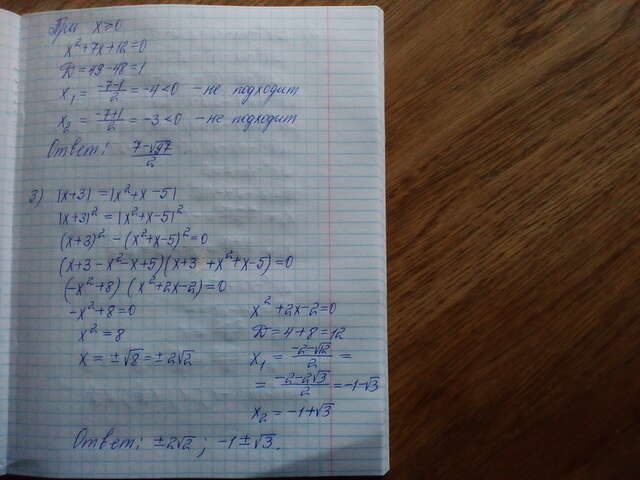 При x≥0
x²+7x+12=0
D=49-48=1
x₁ = (-7-1)/2 = -4<0 - не подходит
x₂ = (-7+1)/2 = -3<0 - не подходит
Ответ: (7-√97)/2
3) |x+3| = |x²+x-5|
|x+3|² = |x²+x-5|²
(x+3)² - (x²+x-5)²=0
(x+3-x²-x+5)(x+3+x²+x-5)=0
(-x²+8)(x²+2x-2)=0
-x²+8=0
x²=8
x=±√8=±2√2
x²+2x-2=0
D=4+8=12
x₁ = (-2-√12)/2 =
= (-2-2√3)/2 = -1-√3
x₂ = -1+√3
Ответ: ±2√2; -1±√3.